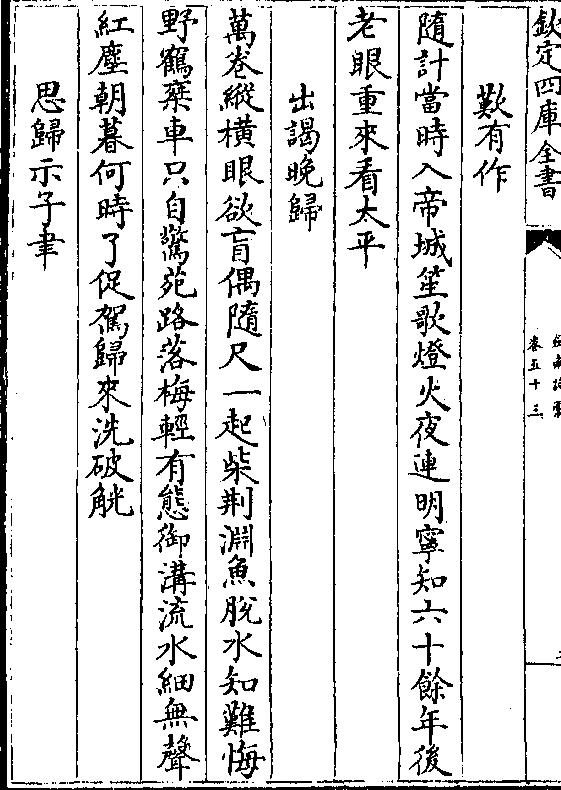 欽定四庫全書
卷五十三
歎有作
隨計當時入帝城笙歌燈火夜連明寧知六十餘年後
老眼重來看太平
出謁晚歸
萬卷縱橫眼欲盲偶隨尺一起柴荆淵魚脫水知難悔
野鶴乗車只自驚苑路落梅輕有態御溝流水細無聲
紅塵朝暮何時了促駕歸來洗破觥
思歸示子聿